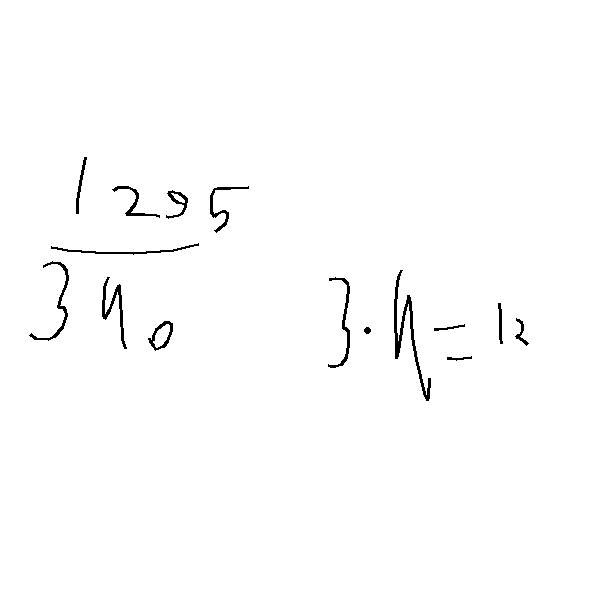 1295
340
3·4=12